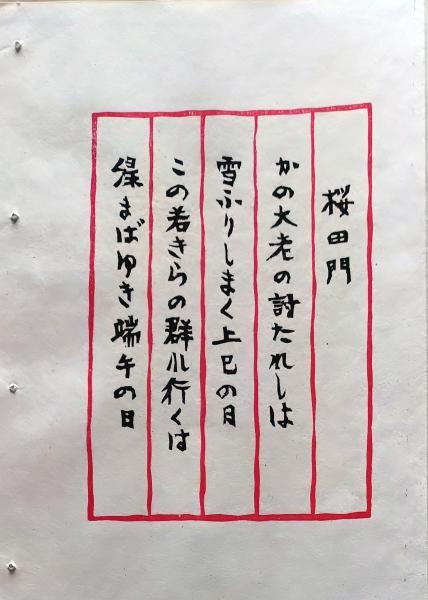 桜田門
かの大老の討たれしは
雪ふりしまく上巳の日
この若きらの群れ行くは
緑まばゆき端午の日